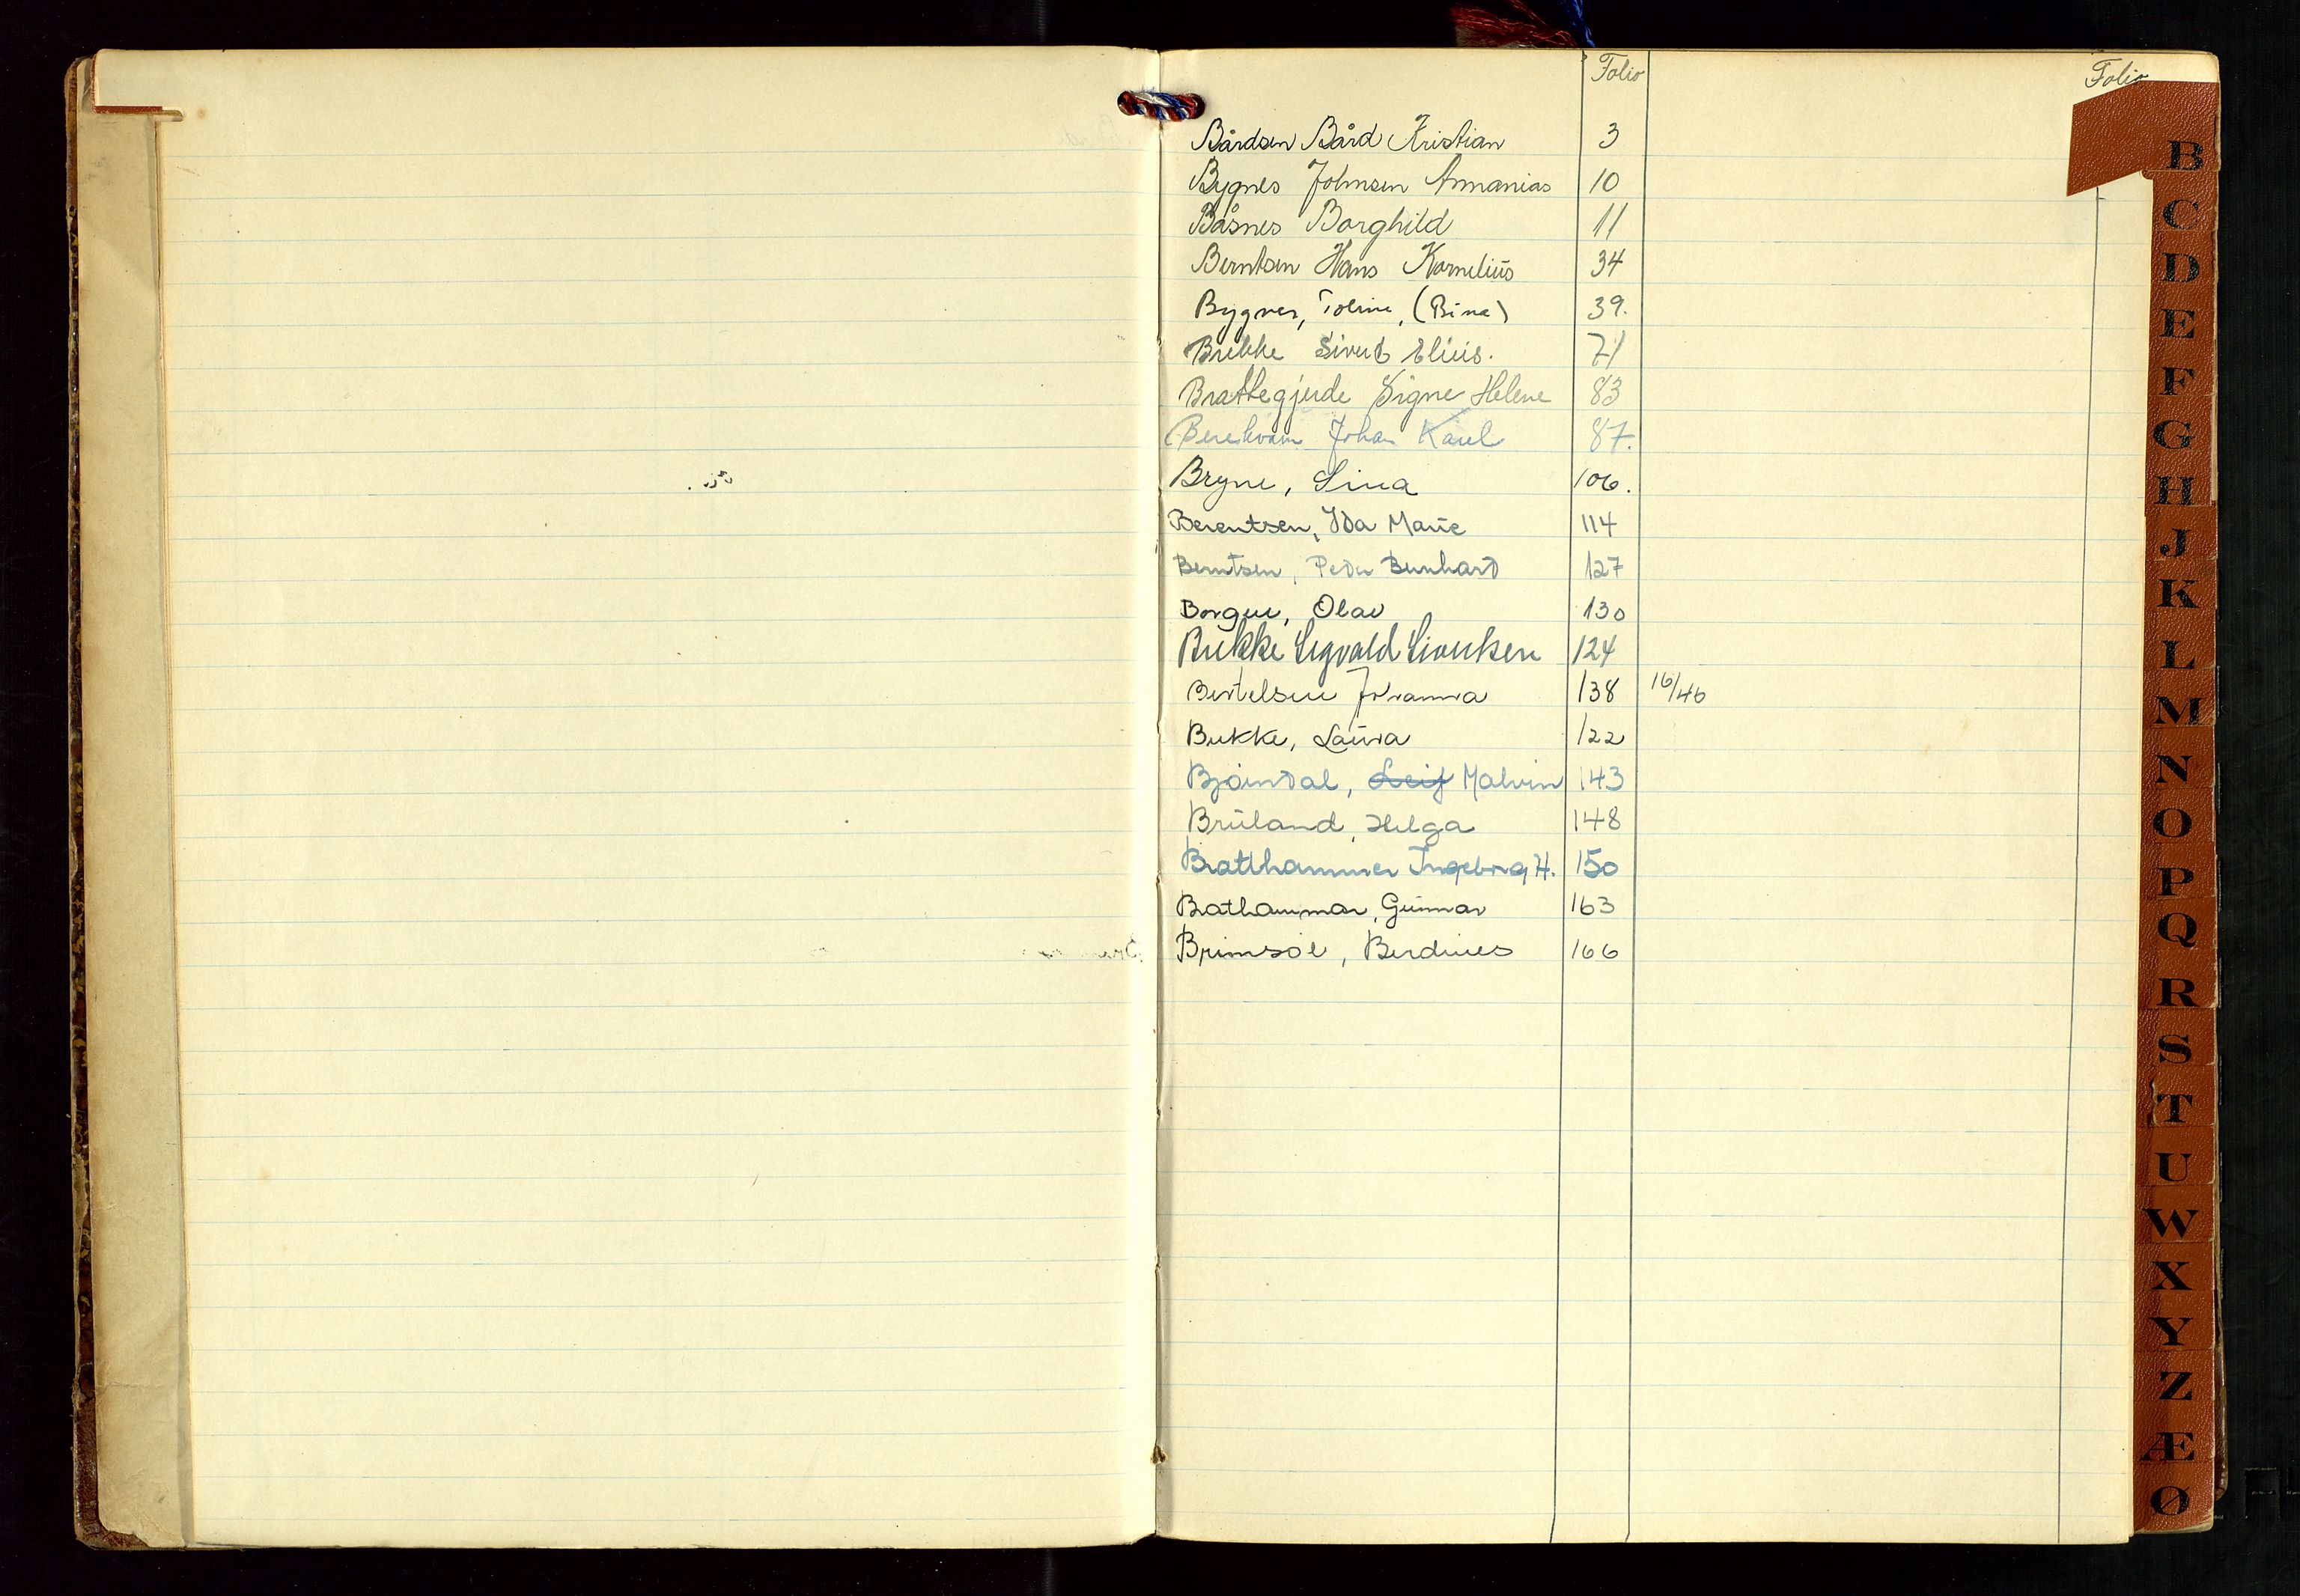 Folio Folio
Bårdsen Bård Kristian 3
Bygnes Johnsen Annanias 10
Båsnes Borghild 11
Berntsen Hans Kornelius 34
Bygnes, Toline, (Bina) 39.
Brekke Sivert Elieis. 71
Brattegjerde Signe Helene 83
Johan Karel 87.
Bryne, Lina 106.
Berentsen, Ida Marie 114
Berntsen, Peder Bernhard 127
Borgen, Olav 130
Brekke Sigvald Sivertsen 124
Bertelsen Johanna 138 16/46
Brekke, Laura 122
Bjørndal, Leif Malvin 143
Brüland, Helga 148
Bratthammer Ingeborg H. 150
Brathammar, Gunnar 163
Brimsøe, Berdines 166
B
C
D
E
F
G
H
J
K
L
M
N
O
P
Q
R
S
T
U
W
X
Y
Z
Æ
Ø